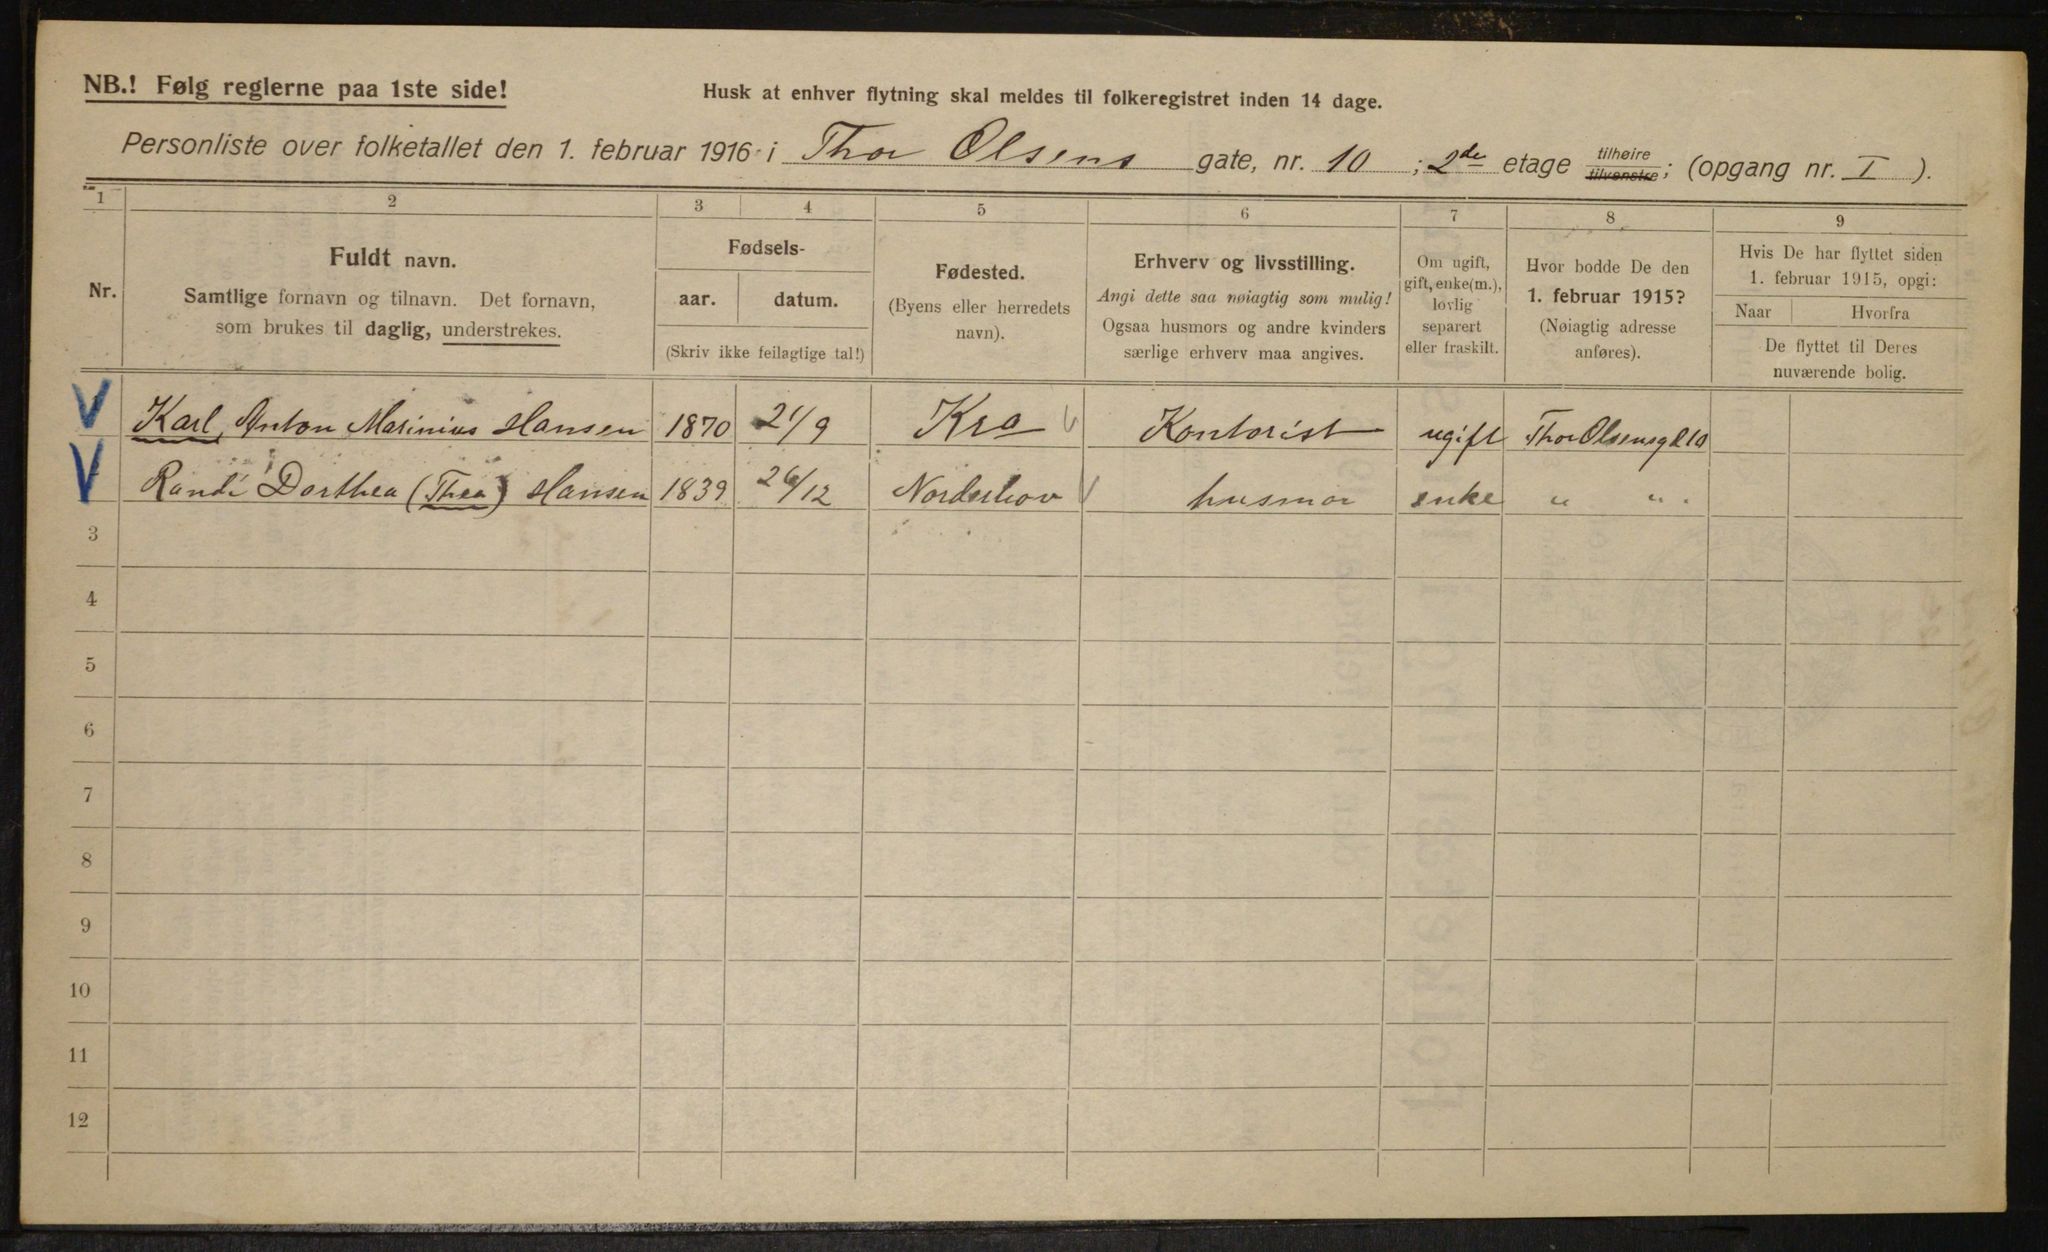 NB.! Følg reglerne paa 1ste side!
Husk at enhver flytning skal meldes til folkeregistret inden 14 dage.
Personliste over folketallet den 1. februar 1916 i Thor Olsens gate, nr. 10 ; 2de etage tilhøire tilvenstre; (opgang nr. I ).
1 2 3 4 5 6 7 8 9
Nr.
Fuldt navn.
Samtlige fornavn og tilnavn. Det fornavn,
som brukes til daglig, understrekes.
Fødsels-
aar. datum.
(Skriv ikke feilagtige tal!)
Fødested.
(Byens eller herredets
navn).
Erhverv og livsstilling.
Angi dette saa nøiagtig som mulig!
Ogsaa husmors og andre kvinders
særlige erhverv maa angives.
Om ugift,
gift, enke(m.),
lovlig
separert
eller fraskilt.
Hvor bodde De den
1. februar 1915?
(Nøiagtig adresse
anføres).
Hvis De har flyttet siden
1. februar 1915, opgi:
Naar Hvorfra
De flyttet til Deres
nuværende bolig.
Karl Anton Marinius Hansen 1870 21/9 Kra Kontorist ugift Thor Olsensgt 10
Randi Dorthea (Thea) Hansen 1839 26/12 Norderhov husmor enke " "
3
4
5
6
7
8
9
10
11
12